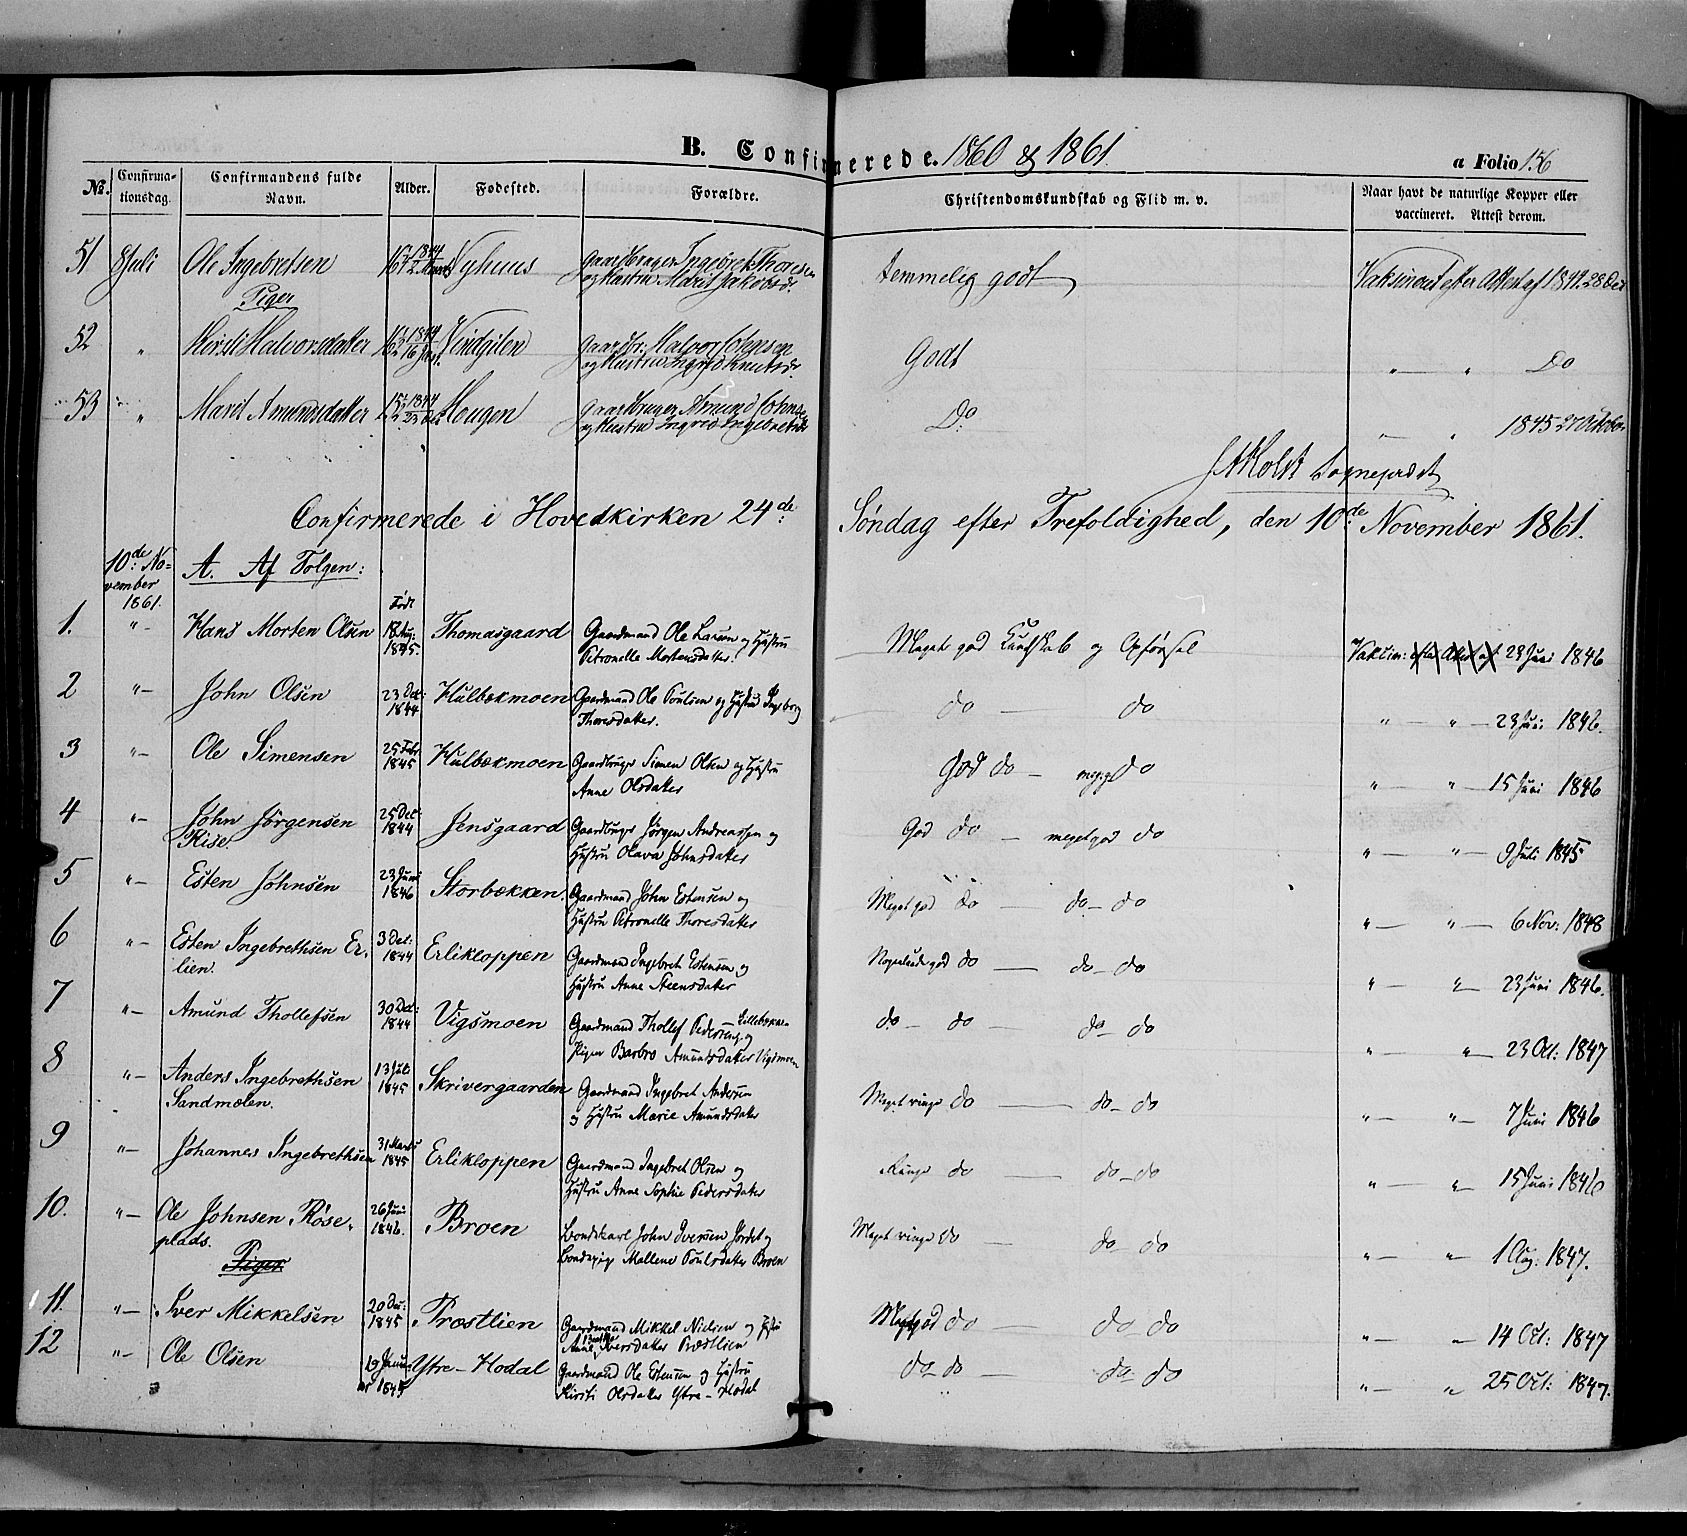 B. Confirmerede. 1860 & 1861.
a Folio 156
No. Confirmationsdag. Confirmandens fulde Navn. Alder. Fødested. Forældre. Christendomskundskab og Flid m. v. Naar havt de naturlige Kopper eller vaccineret. Attest derom.
51 8 Juli Ole Ingebretsen 1844 Nyhuus Gaardbruger Ingebret Thoresen temmelig godt Vaksineret efter Attest af
og Hustru Marit Jakobsd.
Piger
52 " Kirsti Halvorsdatter 1844 16 Jan. Vindgilen Gaardbr: Halvor Johnsen Godt " " Do
og Hustru Ingrid Knutsd.
53 " Marit Amundsdatter 1844 Hougen Gaardbruger Amund Johns. Do " " 1845 27 Oktober
og Hustru Ingrid Ingebretsdt
Holst Sognepræst
Confirmerede i Hovedkirken 24de Søndag efter Trefoldighed, den 10de November 1861.
10de November 1861. A. Af Tolgen:
Født
1. "- Hans Morten Olsen 18 Aug: 1845. Thomasgaard Gaardmand Ole Larsen og Hustru Meget god Kundskab og Opførsel Vaksin: efter Attest af 23 Juni 1846
Petronelle Mortensdatter.
2 "- John Olsen 23 Dec: 1844 Hulbækmoen Gaardmand Ole Poulsen og Hustru Ingeborg do — do " — " — 23 Juni 1846.
Thoresdatter.
3 "- Ole Simensen 25 Febr 1845 Hulbækmoen Gaardbruger Simen Olsen og Hustru God do — do " — " — 15 Juni 1846
Anne Olsdatter
4 "- John Jørgensen 25 Dec 1844 Jensgaard Gaardbruger Jørgen Andreassen og God do — meget god do " — " — 9 Juli 1845
Kise. Hustru Olava Johnsdatter
5 "- Esten Johnsen 23 Juni 1846 Storbækken. Gaardmand John Estensen og Meget god do — do — do " — " — 6 Nov: 1848
Hustru Petronelle Thoresdatter
6 "- Esten Ingebrethsen Er- 3 Dec: 1844 Erlikloppen Gaardmand Ingebret Estensen og Nogenlunde god do — do — do " — " — 23 Juni 1846.
lien. Hustru Anne Steensdatter
7 "- Amund Thollefsen 30 Dec: 1844 Vigsmoen Gaardmand Thollef Pedersen Lillebækken og do — do — do — do " — " — 23 Oct: 1847
Pigen Barbro Amundsdatter Vigsmoen
8 "- Anders Ingebrethsen 13 Juli 1845 Skrivergaarden Gaardmand Ingebret Andersen Meget ringe do — do — do " — " — 7 Juni 1846
Sandmælen. og Hustru Marie Amundsdatter
9 "- Johannes Ingebrethsen 31 Marts 1845 Erlikloppen Gaardmand Ingebret Olsen og Ringe do — do — do " — " — 15 Juni 1846
Hustru Anne Sophie Pedersdatter
10. "- Ole Johnsen Røse- 26 Juni 1846. Broen Bondekarl John Iversen Jordet og Meget ringe do — do — do " — " — 1 Aug: 1847.
plads. Bondepige Mallene Poulsdatter Broen
Piger
11. "- Iver Mikkelsen 20 Dec: 1845 Præstlien Gaardmand Mikkel Nielsen og Hustru Meget god do — do — do " — " — 14 Oct: 1847
Anne Iversdatter Præstlien
12 "- Ole Olsen 19 Januar 1845 Ytre-Hodal Gaardmand Ole Estensen og Hustru do — do — do — do " — " — 25 Oct: 1847.
Kirsti Olsdatter Ytre-Hodal